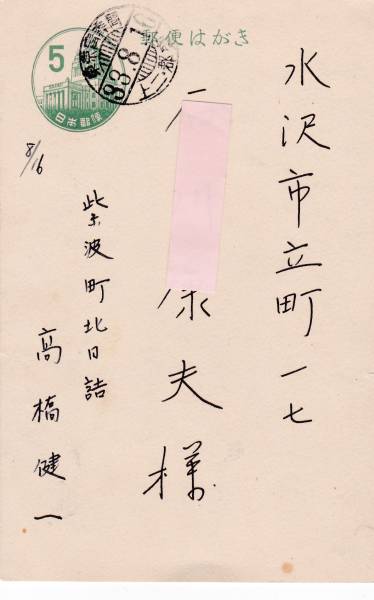 郵便はがき
5
日本郵便
33.8.1
水沢市立町一七
康夫様
紫波町北日詰
高橋健一
8/16